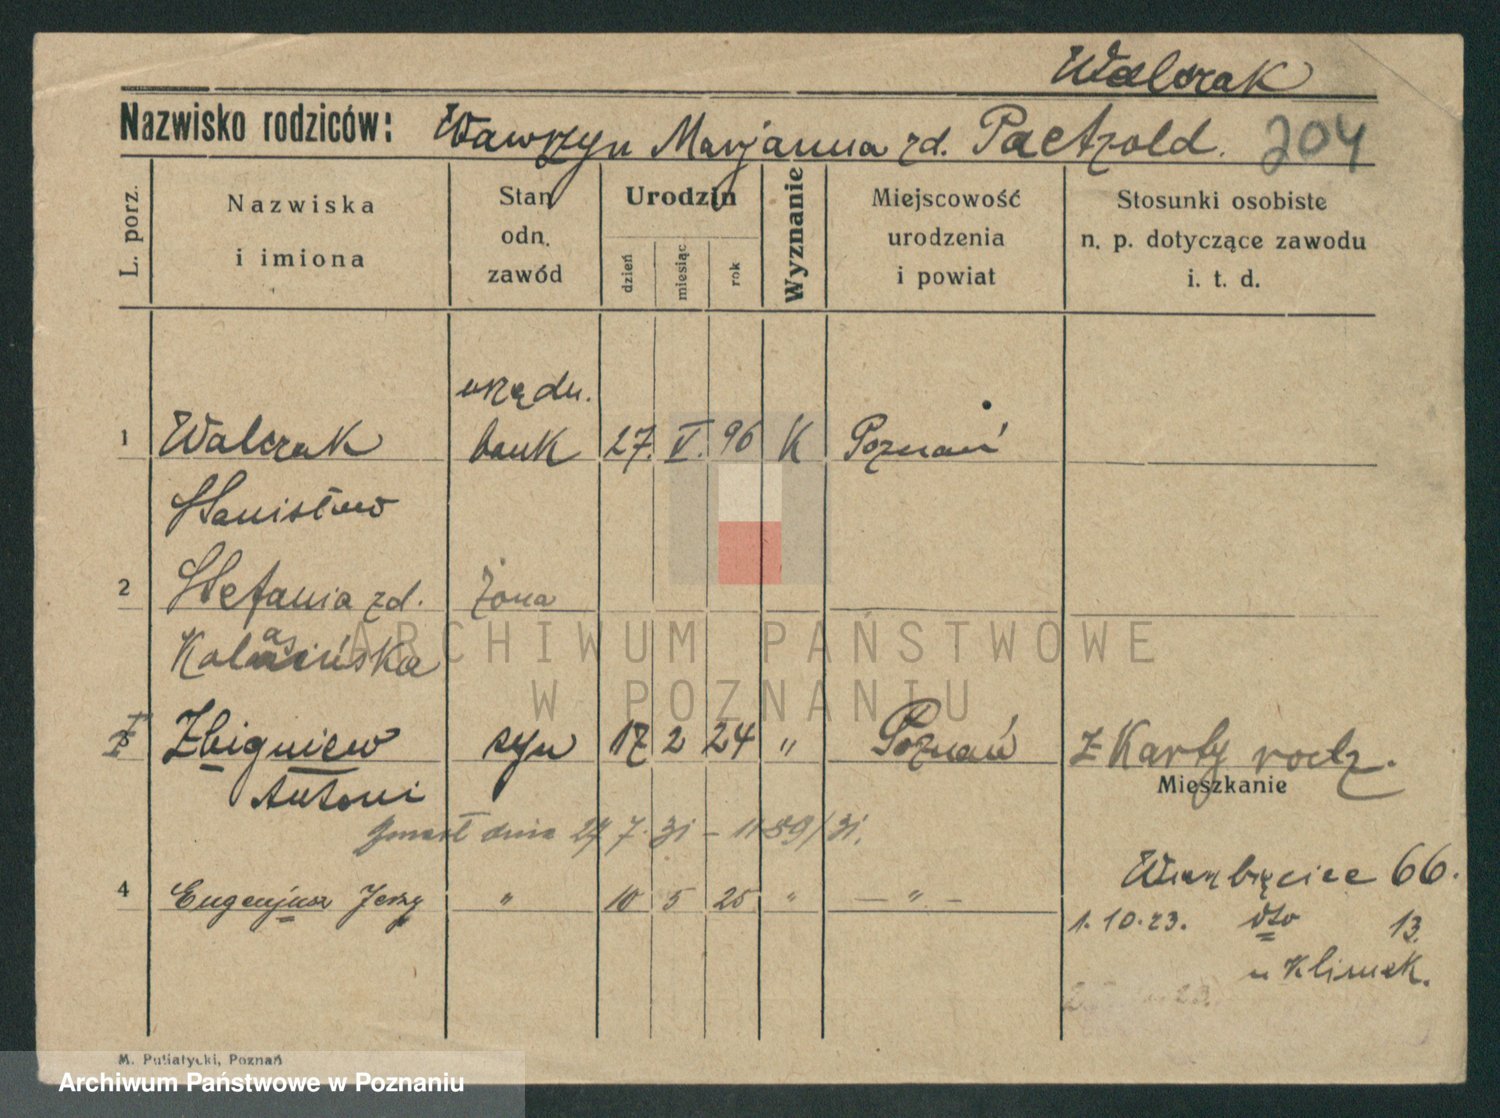 Walczak
Nazwisko rodziców: Wawrzyn Marjanna zd. Paetzold. 204
L. porz.
Nazwiska
i imiona
Stan
odn.
zawód
Urodzin
dzień
miesiąc
rok
Wyznanie
Miejscowość
urodzenia
i powiat
Stosunki osobiste
n. p. dotyczące zawodu
i. t. d.
urzędn.
1 Walczak bank 27. V. 96 K Poznań
Stanisław
2 Stefania zd. żona
3 Zbigniew syn 17 2 24 " Poznań z Karty rodz.
Mieszkanie
Antoni
zmarł dnia 27 7. 31 - 1189/31.
Wierzbięcice 66.
4 Eugenjusz Jerzy " 10 5 25 " - " -
1. 10. 23. dto 13.
u Klimek.
ARCHIWUM PAŃSTWOWE
W POZNANIU
M. Putiatycki, Poznań
Archiwum Państwowe w Poznaniu